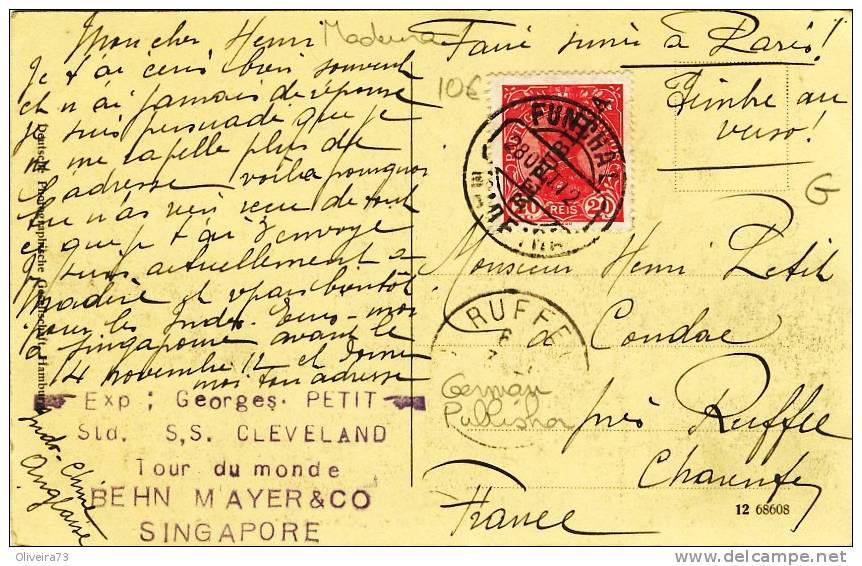 Mon cher Henri
Je t'ai écris bien souvent
et n'ai jamais de réponse
je suis persuadé que je
ne me rapelle plus de
l'adresse voilà pourquoi
tu n'as rien reçu de tout
ce que je t'ai envoyé
Je suis actuellement à
Madère et vpais bientôt
pour les Indes. Ecris-moi
à Singapoure avant le
14 novembre 12 et donne
moi ton adresse
Indo-Chine
Anglaise
Exp: Georges. PETIT
Std. S,S. CLEVELAND
Tour du monde
BEHN MAYER&CO
SINGAPORE
Deutsche Photographische Gesellschaft, Hamburg
Madeira
10€
Faire suivre à Paris!
Timbre au
verso!
G
FUNCHAL
REPUBLICA
20 REIS 20
Monsieur Henri Petit
à Condac
près Ruffec
Charente
France
RUFFEC
German
Pullisher
12 68608
©Oliveira73
www.delcampe.net